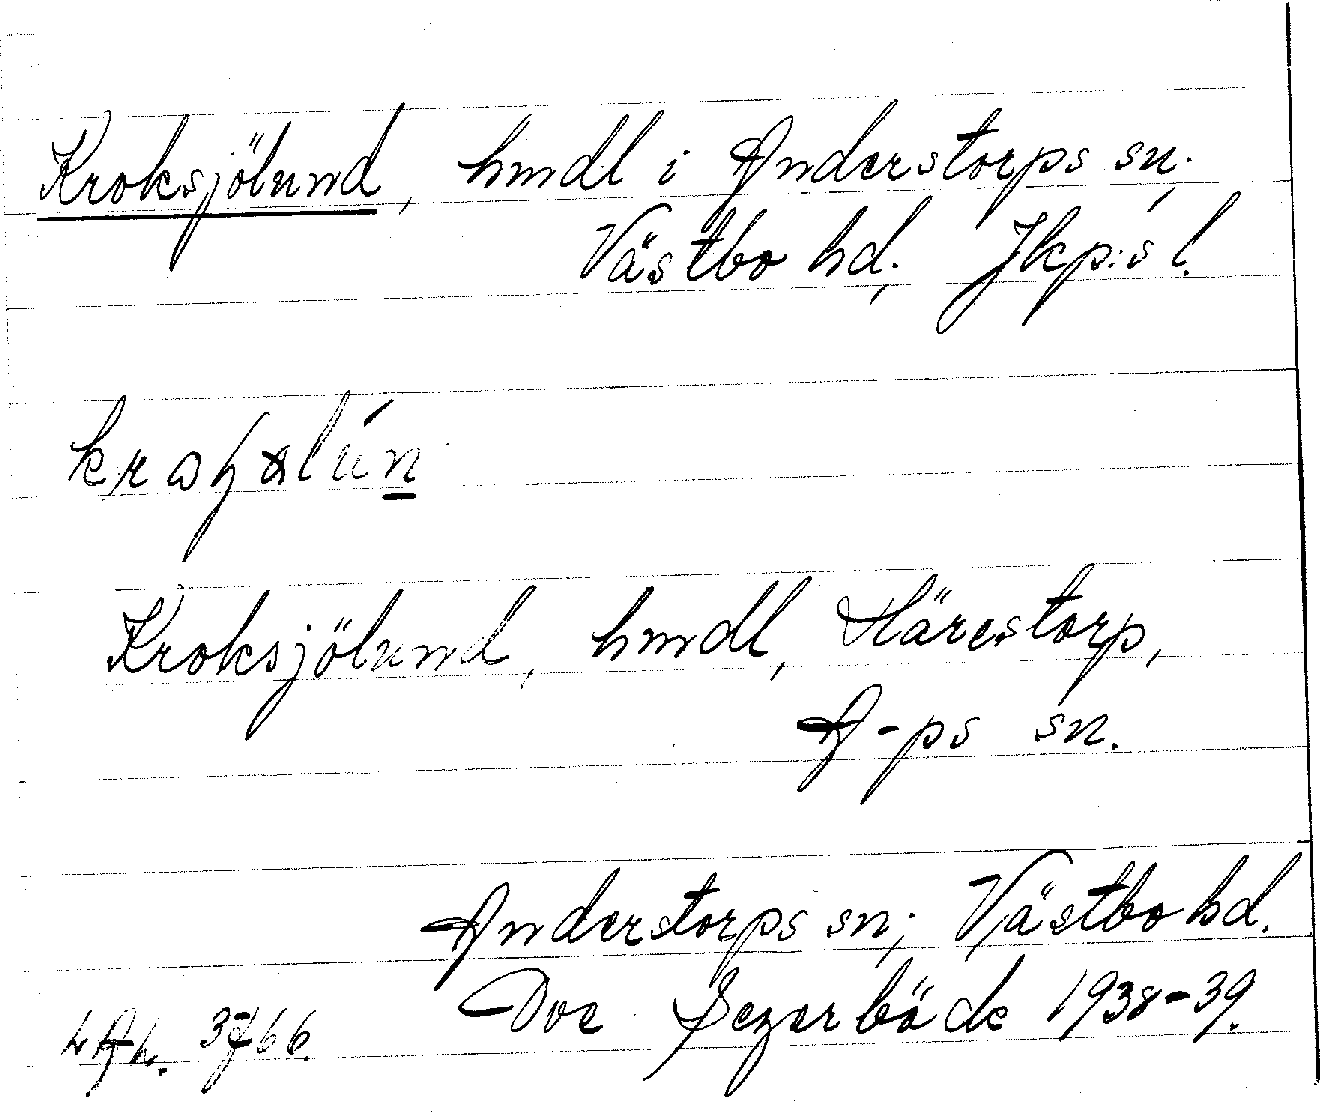 Kroksjölund, hmdl i Anderstorps sn.
Västbo hd, Jkp:s l.
Kroksjölund, hmdl, Härestorp,
A-ps sn.
Anderstorps sn; Västbo hd.
Doc Segerbäck 1938-39.